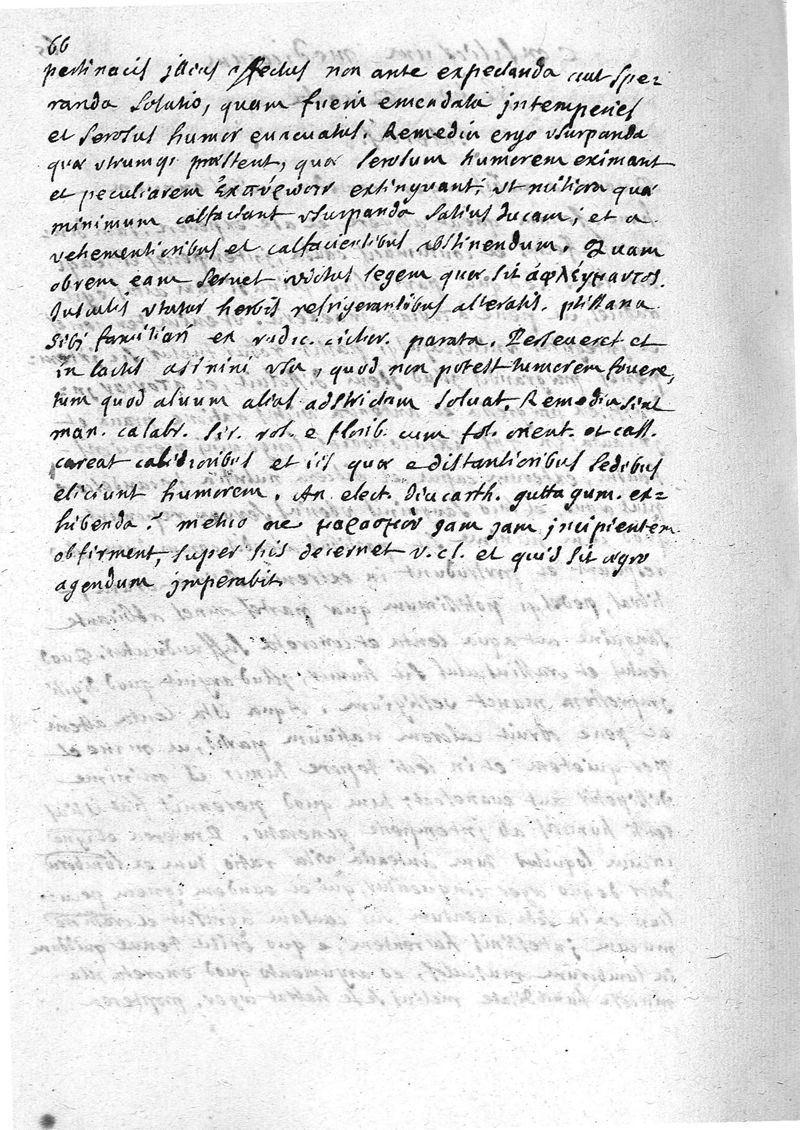 66
pertinacis illius affectus non ante expectanda aut spe-
randa solutio, quam fuerit emendata intemperies
et serosus humor evacuatus. Remedia ergo usurpanda
quæ utrumq; præstent, quæ serosum humorem eximant
et peculiarem ἐκπύρωσιν extinguant; ut mitiora quæ
minimum calfaciant usurpanda satius ducam; et a
vehementioribus et calfacientibus abstinendum. Quam
obrem eam servet victus legem quæ sit ἀφλέγμαντος.
Jusculis utatur herbis refrigerantibus alteratis. ptissana
sibi familiari ex radic. cichor. parata. Perseveret et
in lactis asinini usu, quod non potest tumorem fovere,
tum quod alvum alias adstrictam solvat. Remedia sint
man. calabr. sir. ros. e florib. cum fol. orient. et cass.
careat calidioribus et iis quæ e distantioribus sedibus
eliciunt humorem. An elect. diacarth. gutta gum. ex-
hibenda? metuo ne μαρασμὸν jam jam incipientem
obfirment, super his decernet v. cl. et quid sit ægro
agendum imperabit